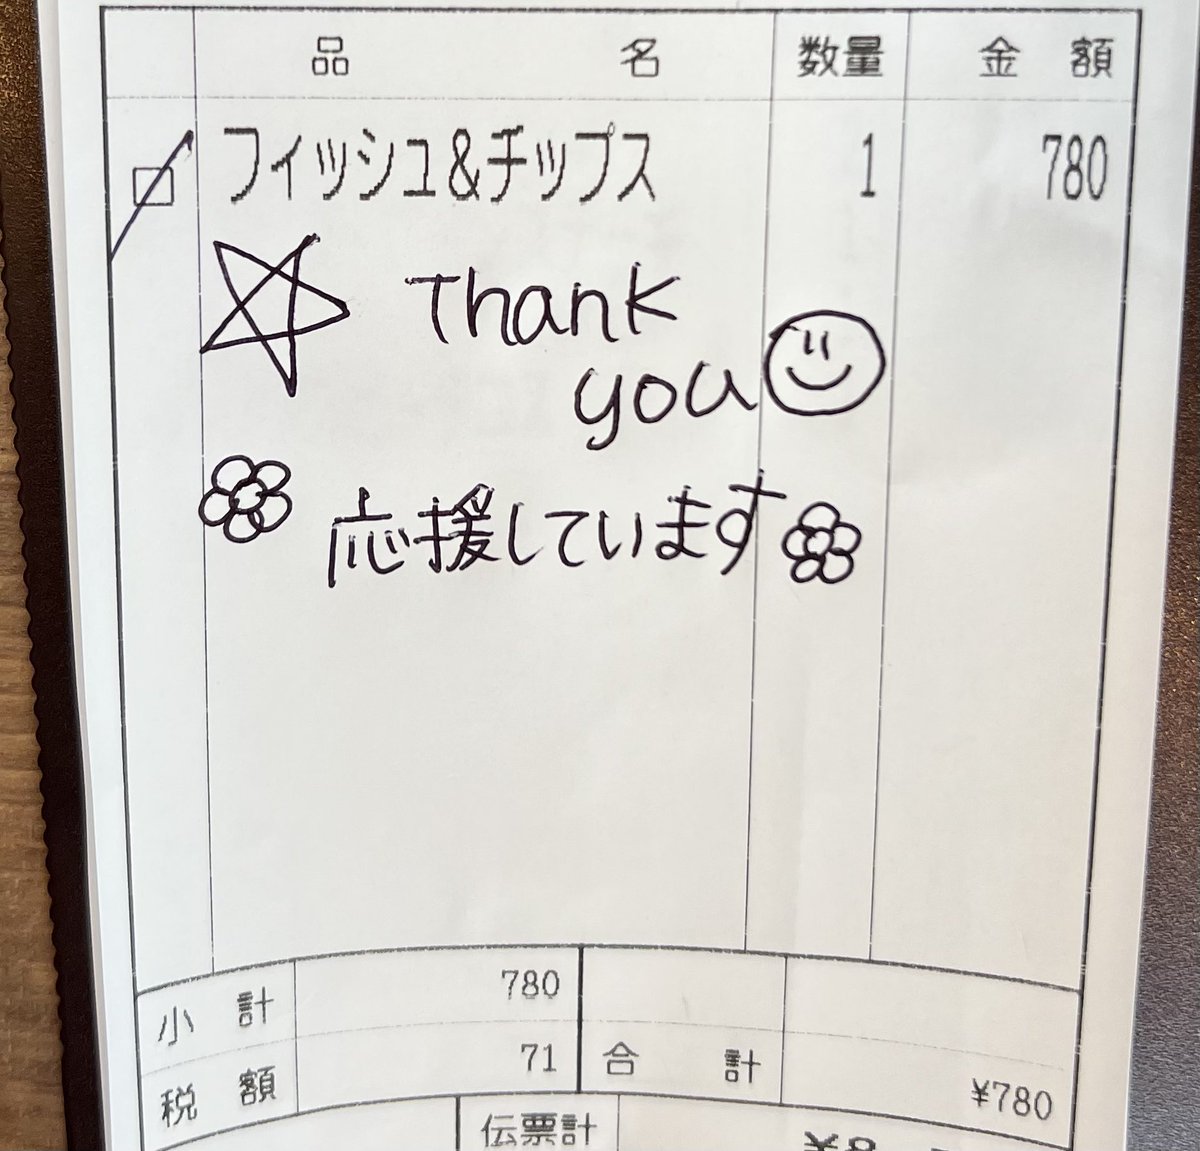 品名 数量 金額
フィッシュ&チップス 1 780
Thank
you
応援しています
小計 780
税額 71 合計 ¥780
伝票計